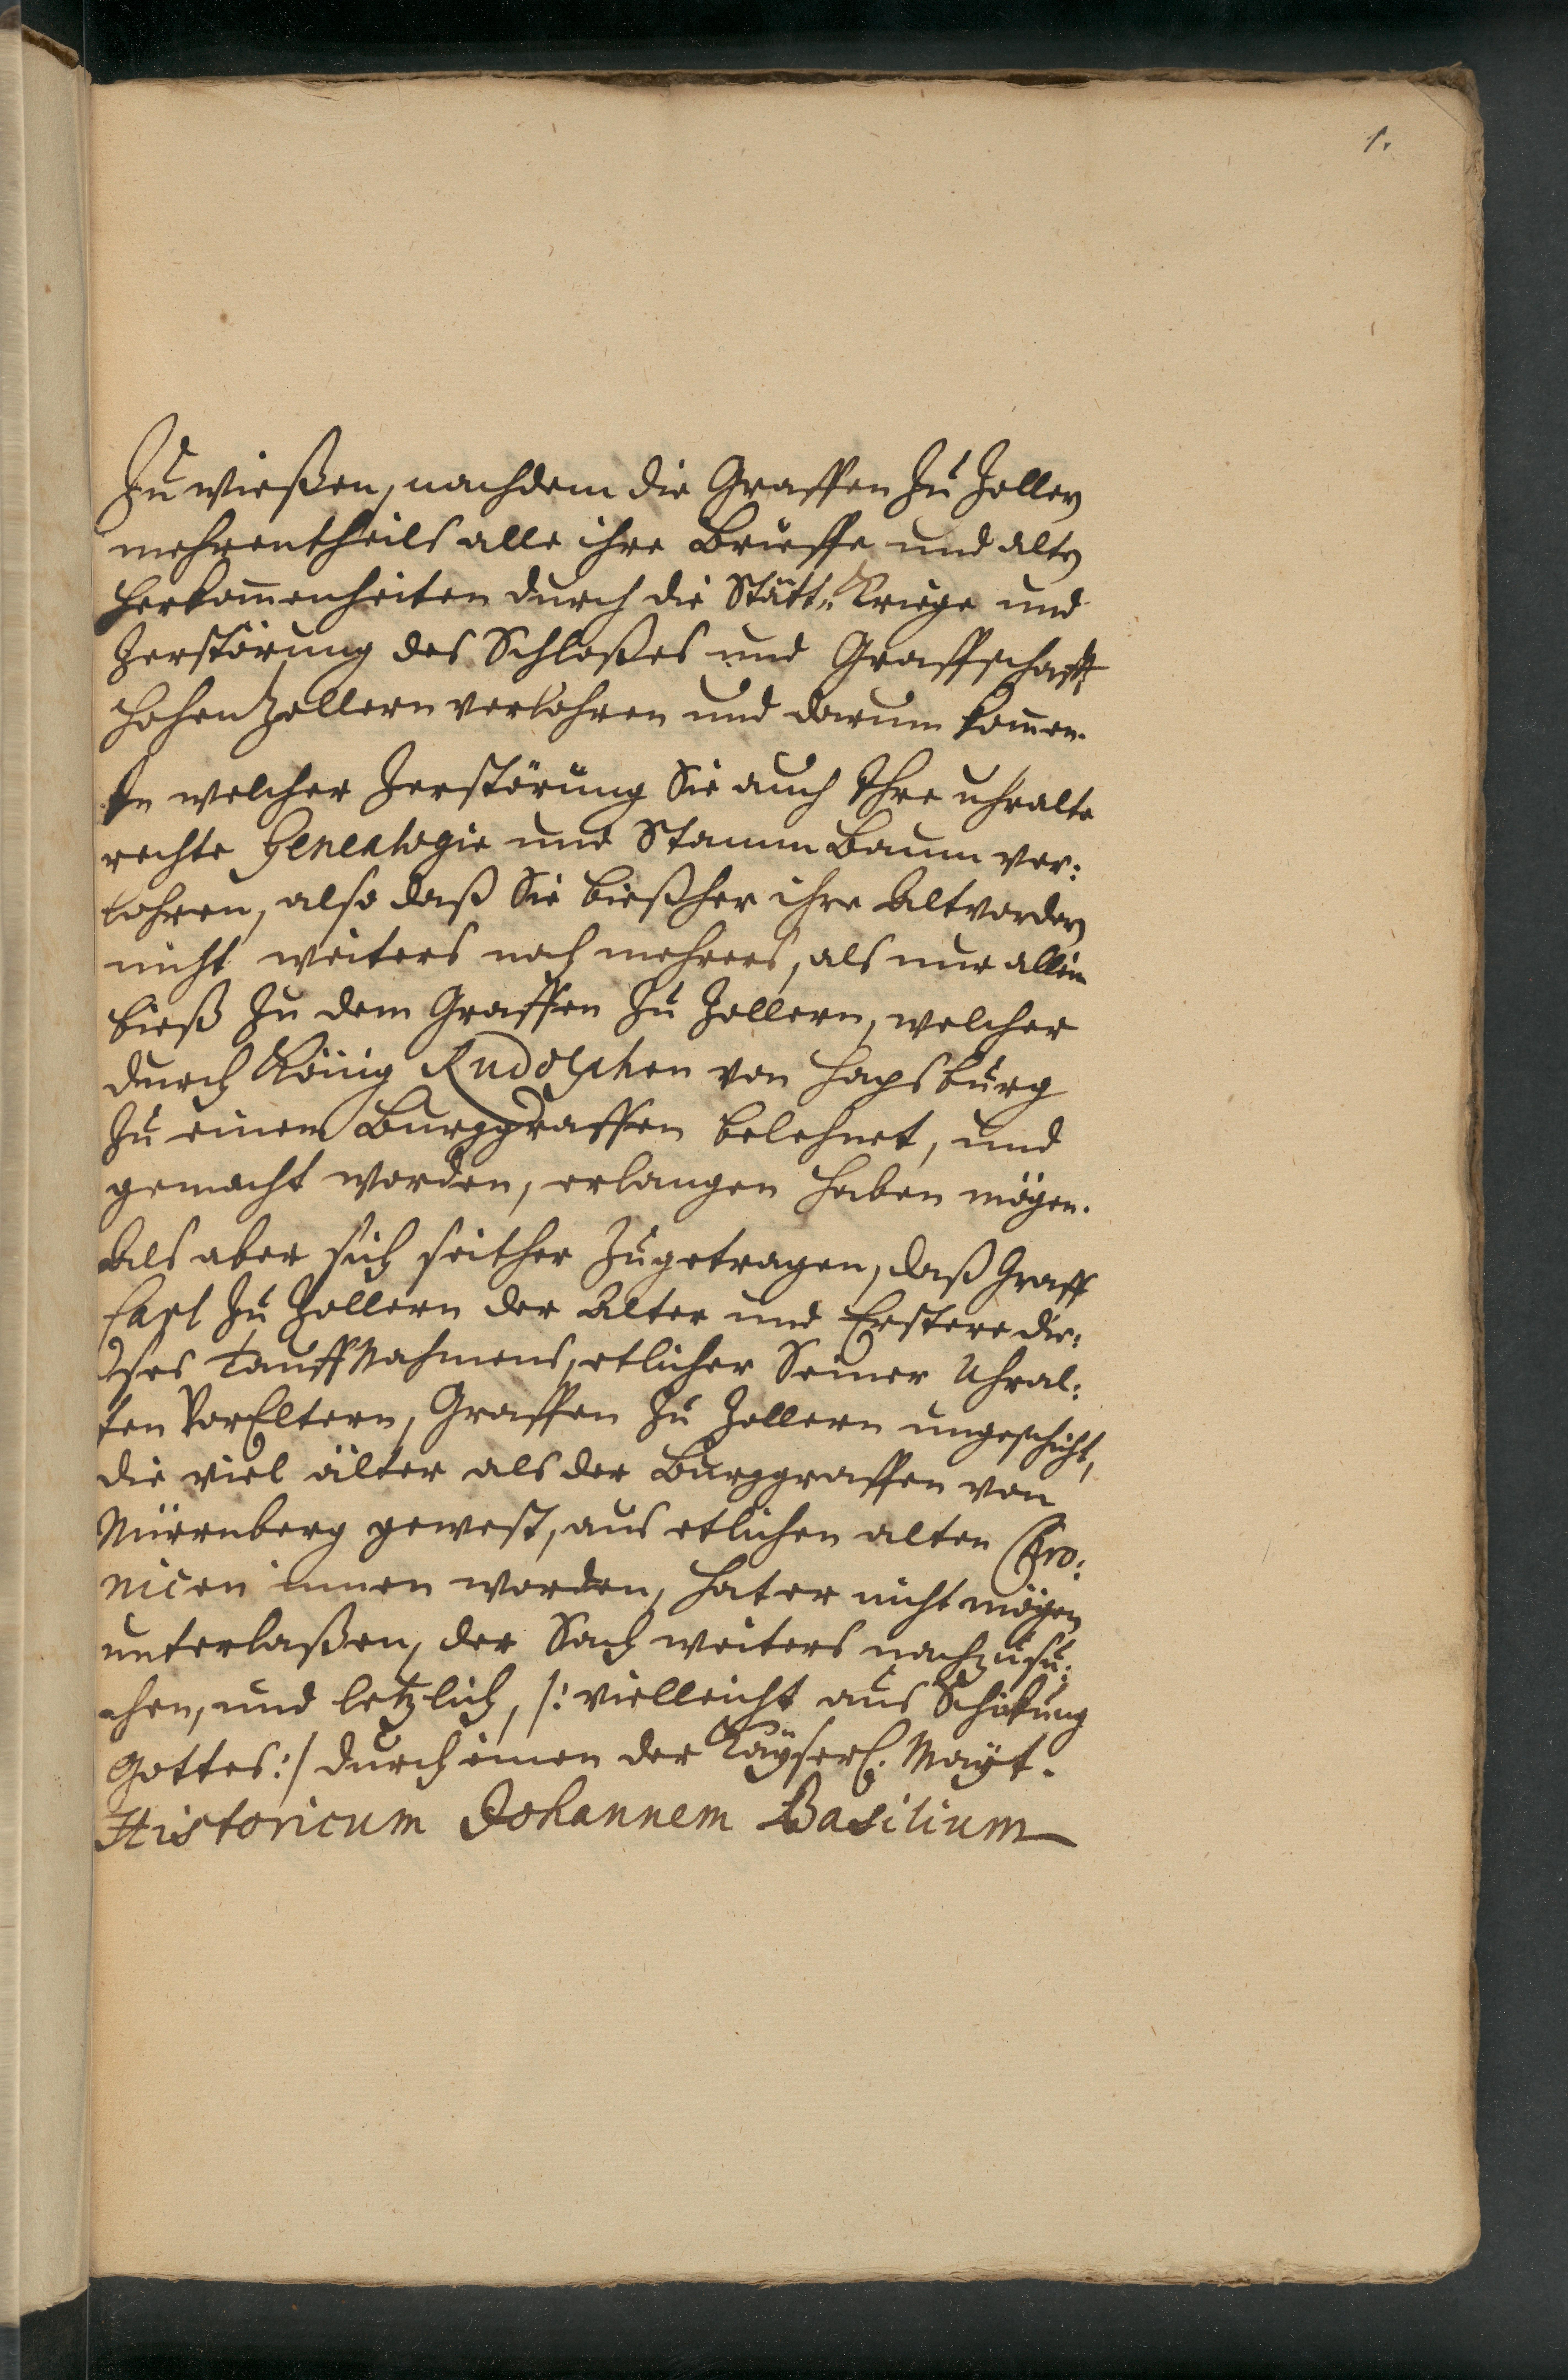 1.
Zu wießen, nachdem die Graffen zu Zollern
mehrentheils alle ihre Brieffe und alte
Herkom̄enheiten durch die Stätt-Kriege und
Zerstörung des Schloßes und Graffschafft
Hohenzollern verlohren und darum kom̄en.
In welcher Zerstörung Sie auch Ihre uhralte
rechte Genealogie und StammBaum ver:
lohren, also daß Sie bießher ihre Altvordern
nicht weiters noch mehrers, als nur allein
bieß zu dem Graffen zu Zollern, welcher
durch König Rudolphen von Hapsburg
zu einem Burggraffen belehnet, und
gemacht worden, erlangen haben mögen.
Als aber sich seither zugetragen, daß Graff
Carl zu Zollern der Alter und Erstere die:
ses TauffNahmens, etlicher Seiner Uhral:
ten VorEltern, Graffen zu Zollern ungeschicht,
die viel älter als der Burggraffen von
Nürnberg gewest, aus etlichen alten Chro:
nicen innen worden, hat er nicht mögen
unterlaßen, der Sach weiters nachzusu:
chen, und letzlich, /: vielleicht aus Schikung
Gottes :/ durch einen der Kayserl. Mayt.
Historicum Johannem Basilium